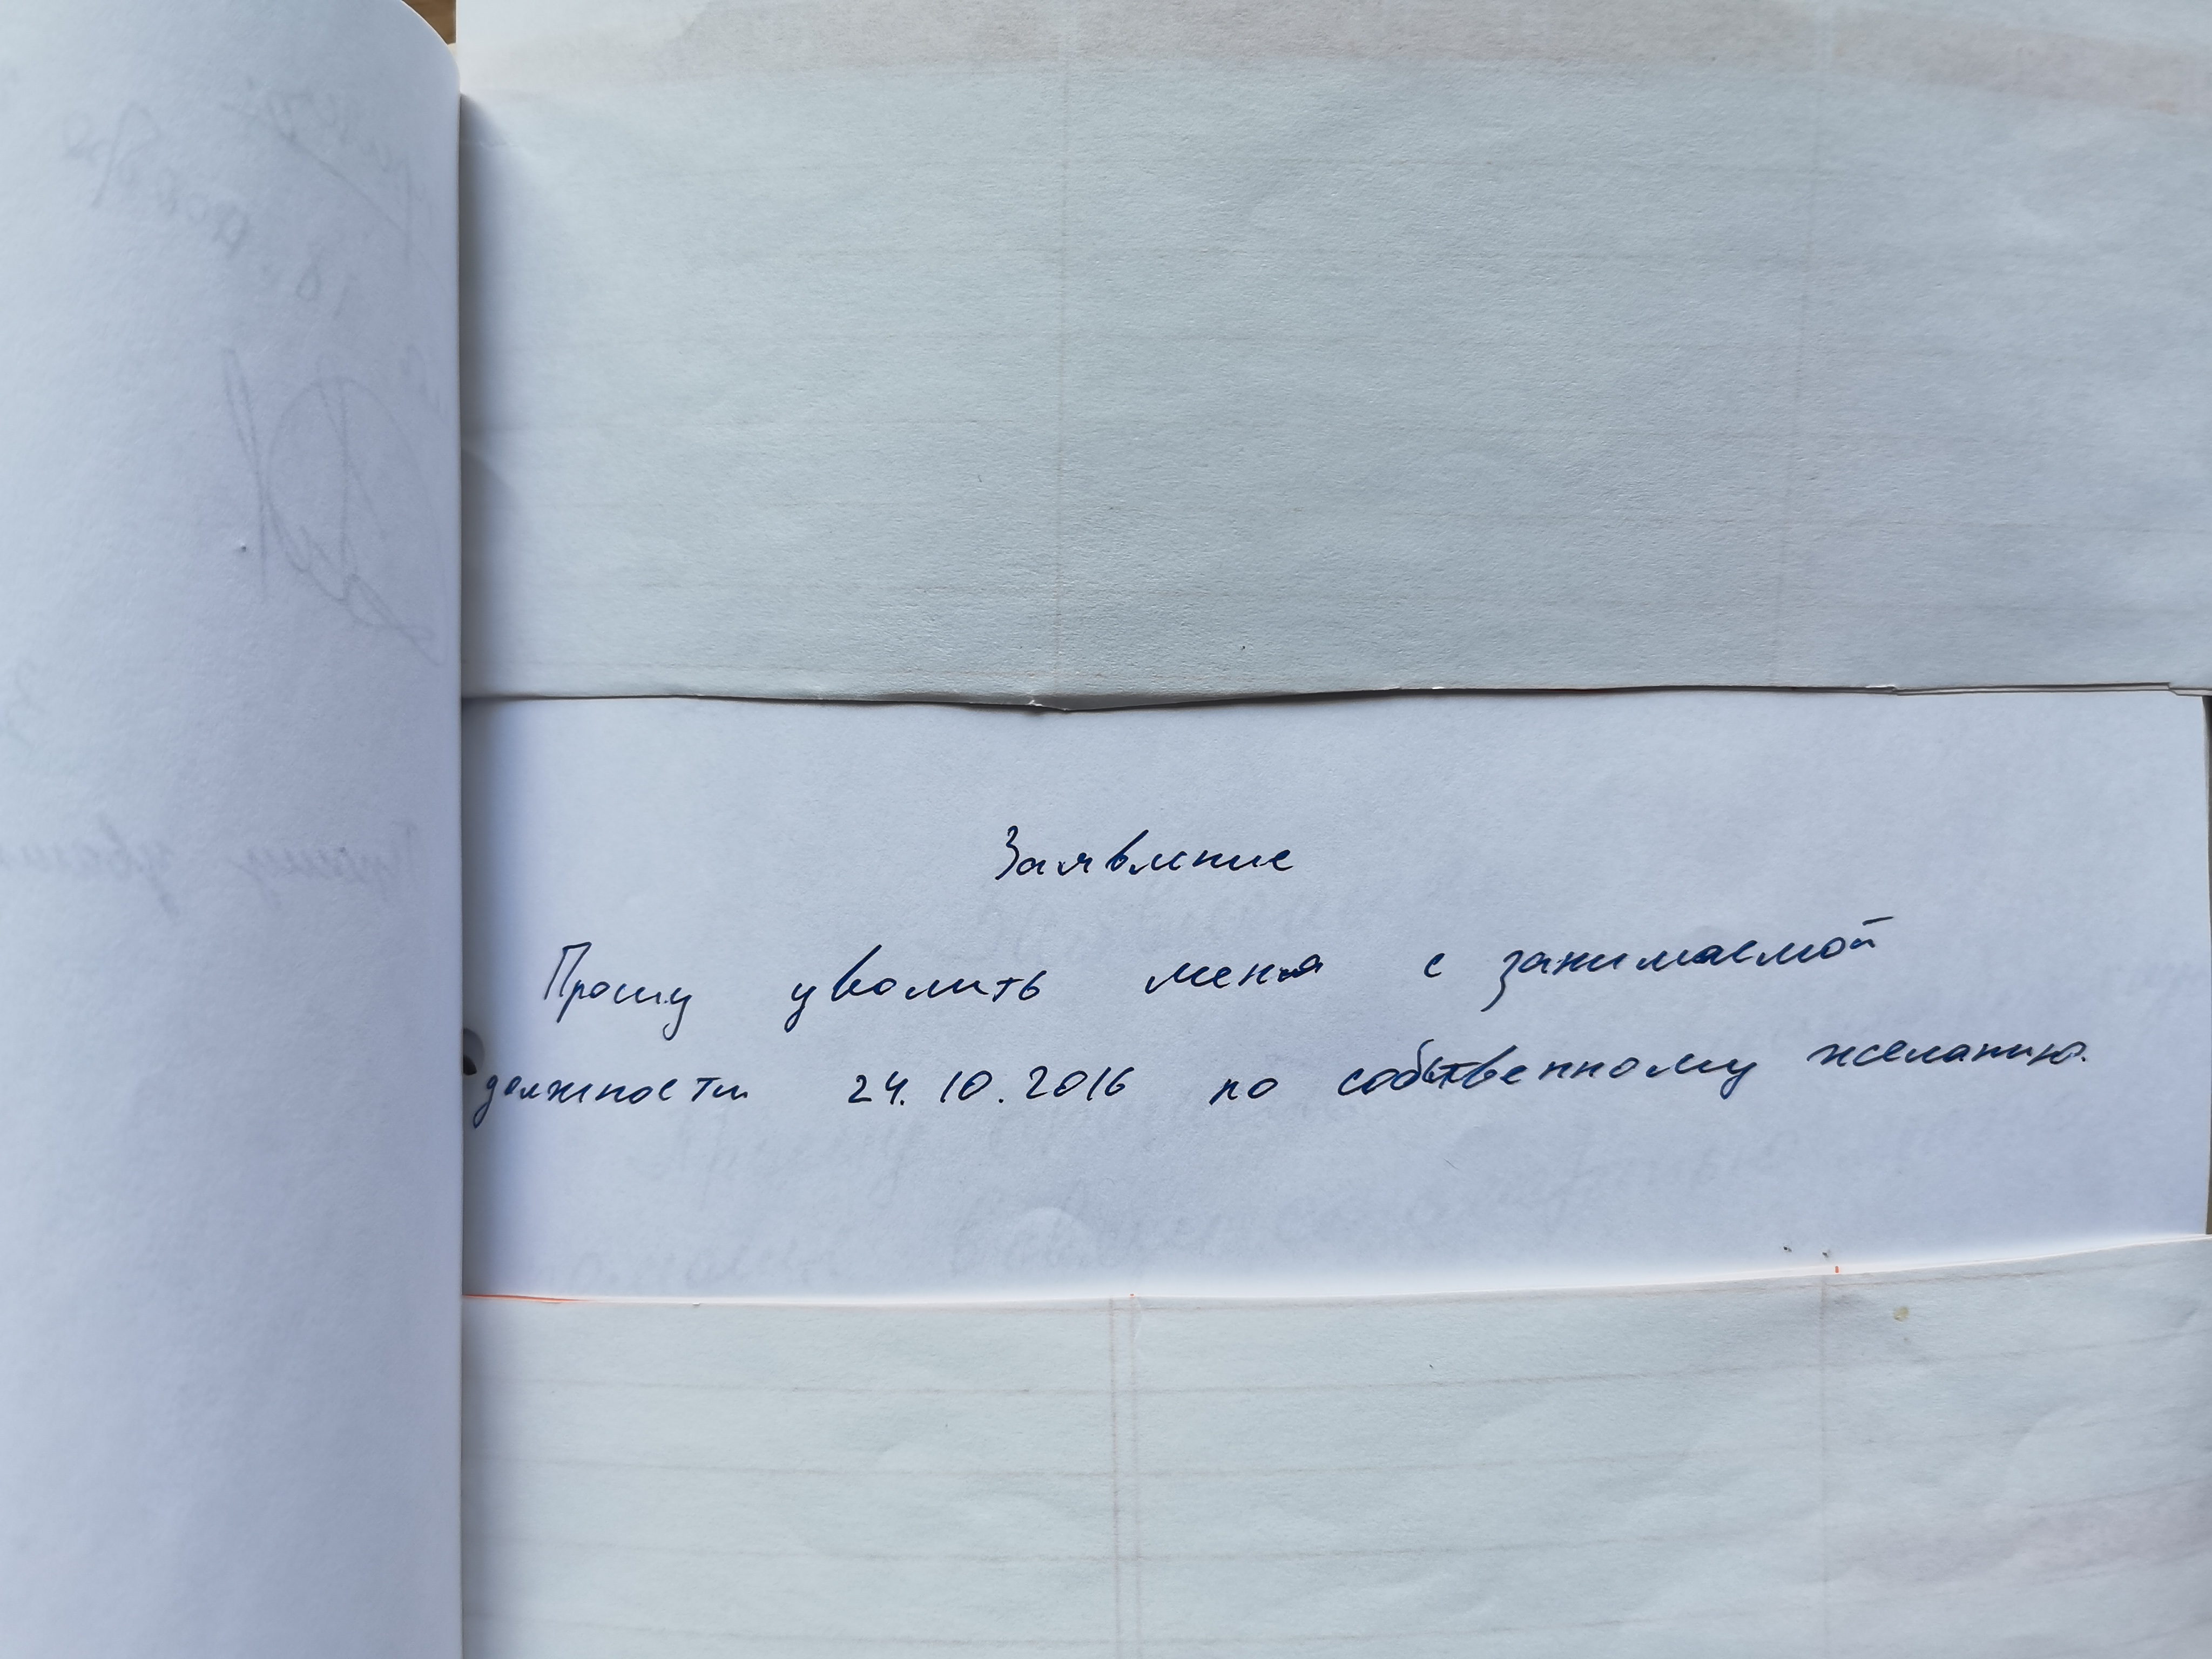 Заявление
Прошу уволить меня с занимаемой
должности 24.10.2016 по собственному желанию.